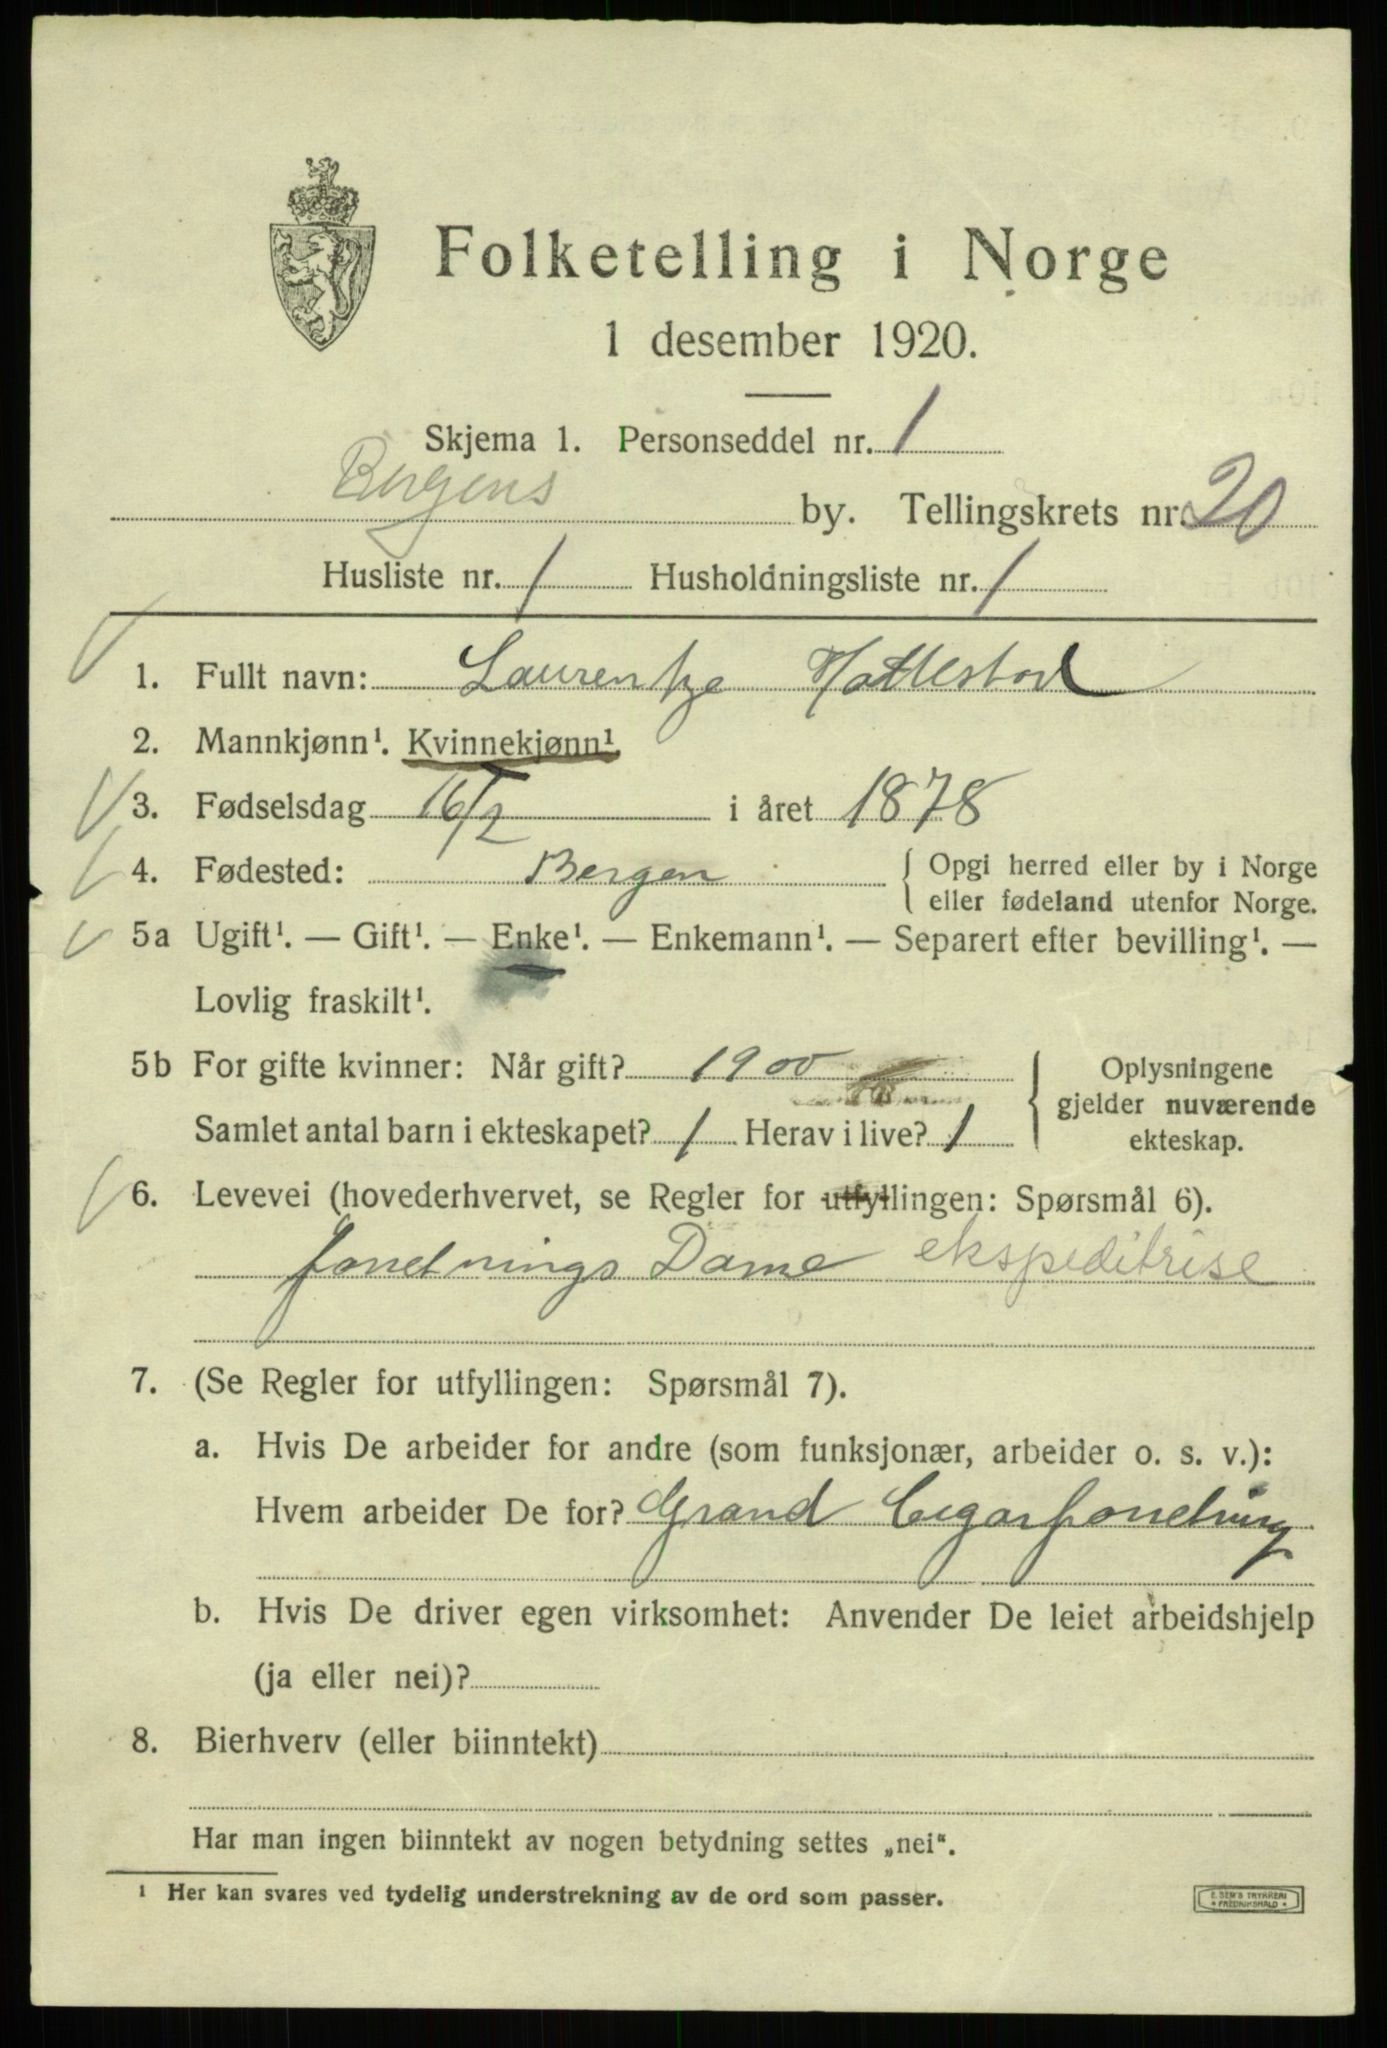 Folketelling i Norge
1 desember 1920.
Skjema 1. Personseddel nr. 1
Bergens by. Tellingskrets nr. 20
Husliste nr. 1 Husholdningsliste nr. 1
1. Fullt navn: Laurentze Hattlestad
2. Mannkjønn¹. Kvinnekjønn¹
3. Fødselsdag 16/2 i året 1878
4. Fødested: Bergen { Opgi herred eller by i Norge
eller fødeland utenfor Norge.
5a Ugift¹. — Gift¹. — Enke¹. — Enkemann¹. — Separert efter bevilling¹. —
Lovlig fraskilt¹.
5b For gifte kvinner: Når gift? 1900
Samlet antal barn i ekteskapet? 1 Herav i live? 1
} Oplysningene
gjelder nuværende
ekteskap.
6. Levevei (hovederhvervet, se Regler for utfyllingen: Spørsmål 6).
forretnings Dame ekspeditrise
7. (Se Regler for utfyllingen: Spørsmål 7).
a. Hvis De arbeider for andre (som funksjonær, arbeider o. s. v.):
Hvem arbeider De for? Grand Cigarforretning
b. Hvis De driver egen virksomhet: Anvender De leiet arbeidshjelp
(ja eller nei)?
8. Bierhverv (eller biinntekt)
Har man ingen biinntekt av nogen betydning settes „nei“.
¹ Her kan svares ved tydelig understrekning av de ord som passer.
E. SEM'S TRYKKERI
* FREDRIKSHALD *